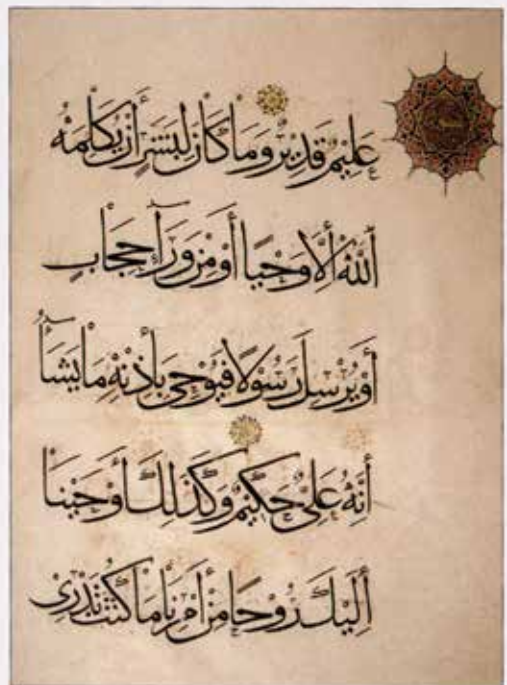 عَلِيمٌ قَدِيرٌ وَمَا كَانَ لِبَشَرٍ أَنْ يُكَلِّمَهُ
اَللَّهُ أِلَّا وَحْيًا أَوْ مِنْ وَرَآءِ حِجَابٍ
أَوْ يُرْسِلَ رَسُولًا فَيُوحِيَ بِأِذْنِهِ مَا يَشَآءُ
أِنَّهُ عَلِيٌّ حَكِيمٌ وَكَذَلِكَ أَوْحَيْنَا
أِلَيْكَ رُوحًا مِنْ أَمْرِنَا مَا كُنْتَ تَدْرِي